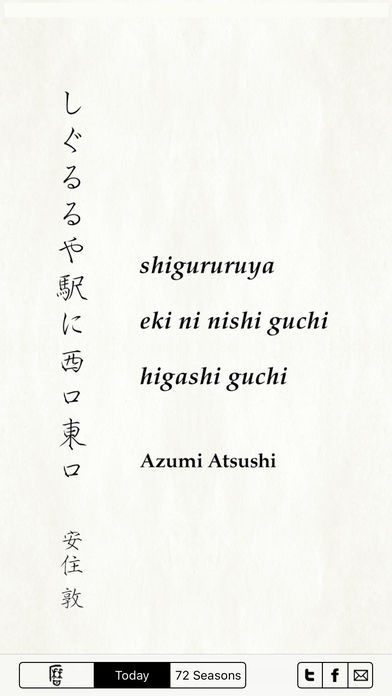 しぐるるや駅に西口東口
安住 敦
shigururuya
eki ni nishi guchi
higashi guchi
Azumi Atsushi
暦
Today
72 Seasons
t
f